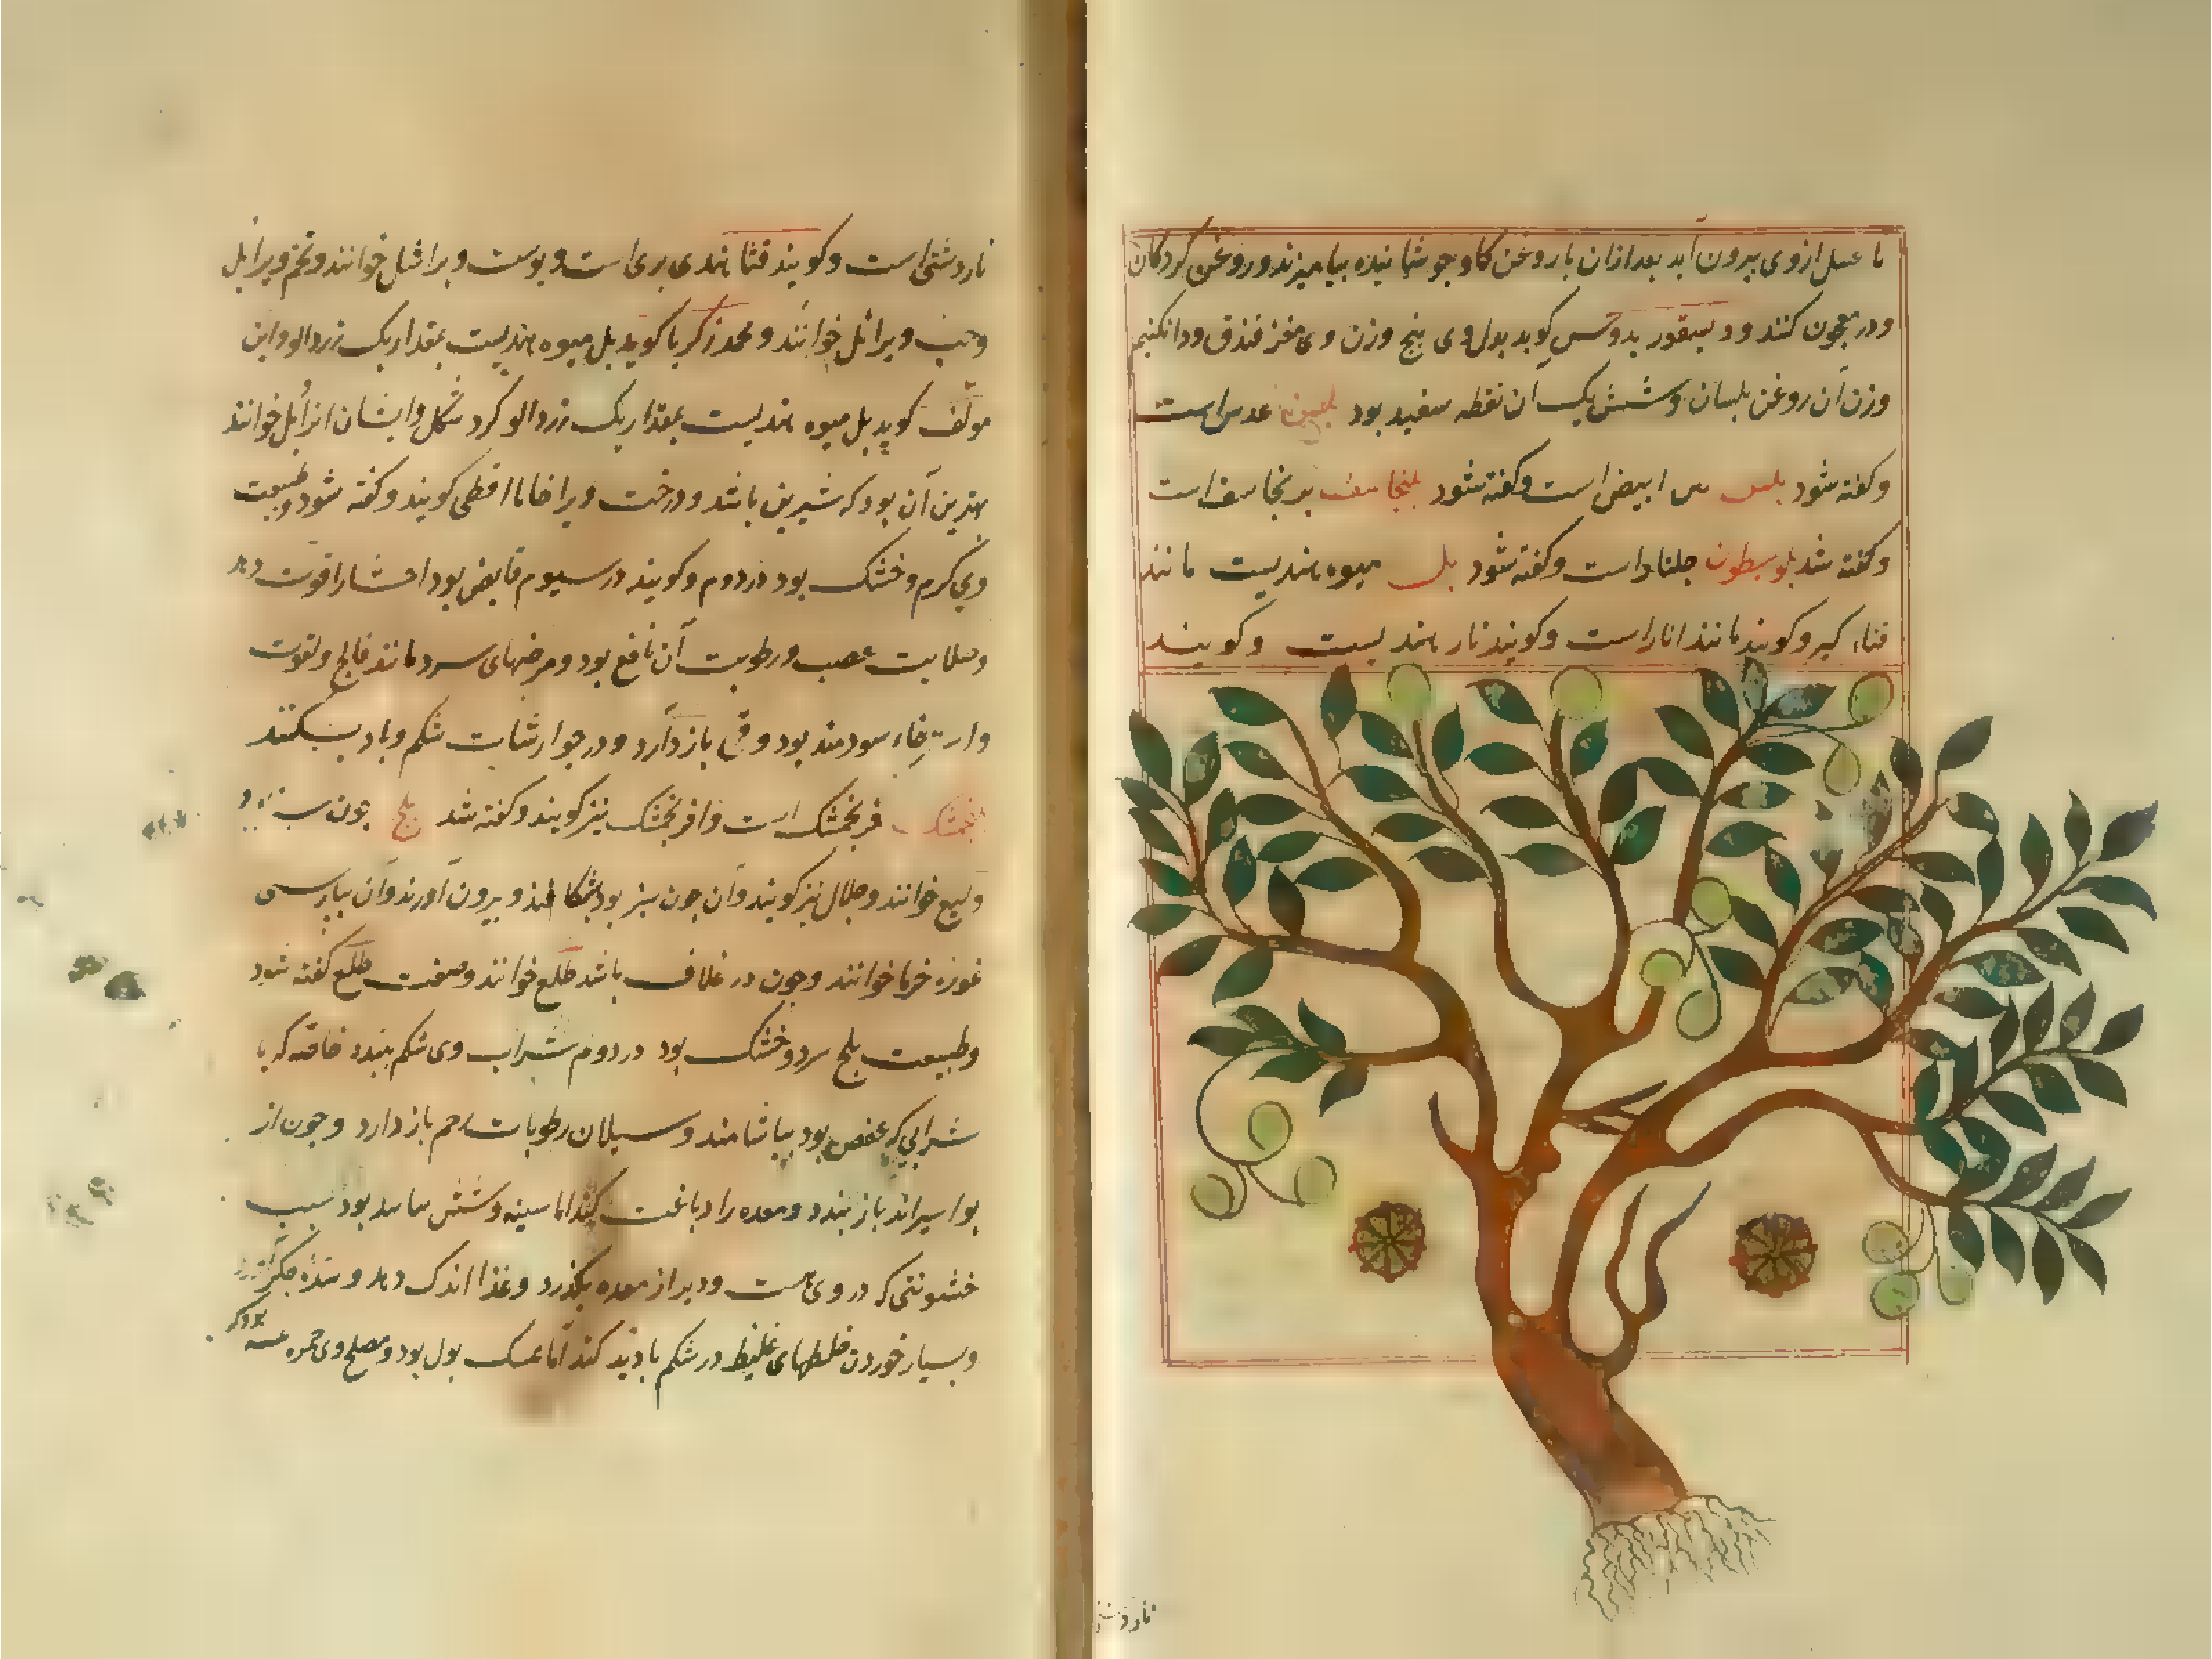 تا عسل ازوی بیرون آید بعد ازان با روغن کاو جوشانیده بیامیزند و روغن کردکان
ودر معجون کنند ود یسقور یدوس کوید بدل وی پنج وزن وی مغز فندق ودانکنیم
وزن آن روغن بلسان وشش یک آن نقطه سفید بود عدس است
وکفته شود بلس ابیض است وکفته شود بلنجاسف برنجاسف است
وکفته شد بلوسطون جلنار است وکفته شود بل میوه هندیست مانند
قثاء کبر وکویند مانند انار است وکویند نار هندیست وکویند
ناردشتی است وکویند قثا هندی بری است وپوست ویرا شل خوانند وتخم ویرا بل
وحب ویرا تل خوانند ومحمد زکریا کوید بل میوه هندیست بمقدار یک زردالو واین
مولف کوید بل میوه هندیست بمقدار یک زردالو کرد شکل وایشان انرا بل خوانند
بهترین آن بود که شیرین باشد ودرخت ویرا خاما اقطی کویند وکفته شود وطبیعت
وی کرم وخشک بود در دوم وکویند در سیوم قابض بود احشا را قوت دهد
وصلابت عصب ورطوبت آن نافع بود ومرضهای سرد مانند فالج ولقوت
واسترخاء سودمند بود وقی باز دارد ودر جوارشات شکم وباد بشکنند
فرنجمشک است وافرنجمشک نیز کویند وکفته شد بلح چون سبز بود
ولیع خوانند وخلال نیز کویند وآن چون سبز بود بشکافند وبیرون آورند وآن بپارسی
غوزه خرما خوانند وچون در غلاف باشد طلع خوانند وصفت طلع کفته شود
وطبیعت بلح سرد وخشک بود در دوم شراب وی شکم ببندد خاصه که با
شرابی که عفص بود بیاشامند وسیلان رطوبات رحم باز دارد وچون از
بواسیر اند باز بندد ومعده را دباغت کند اما سینه وشش را بد بود بسبب
خشونتی که در وی هست ودیر از معده بکذرد وغذا اندک دهد وسده جکر آورد
وبسیار خوردن خلطهای غلیظ در شکم بادید کند اما ممسک بول بود ومصلح وی خمره بود که
ناردشتی